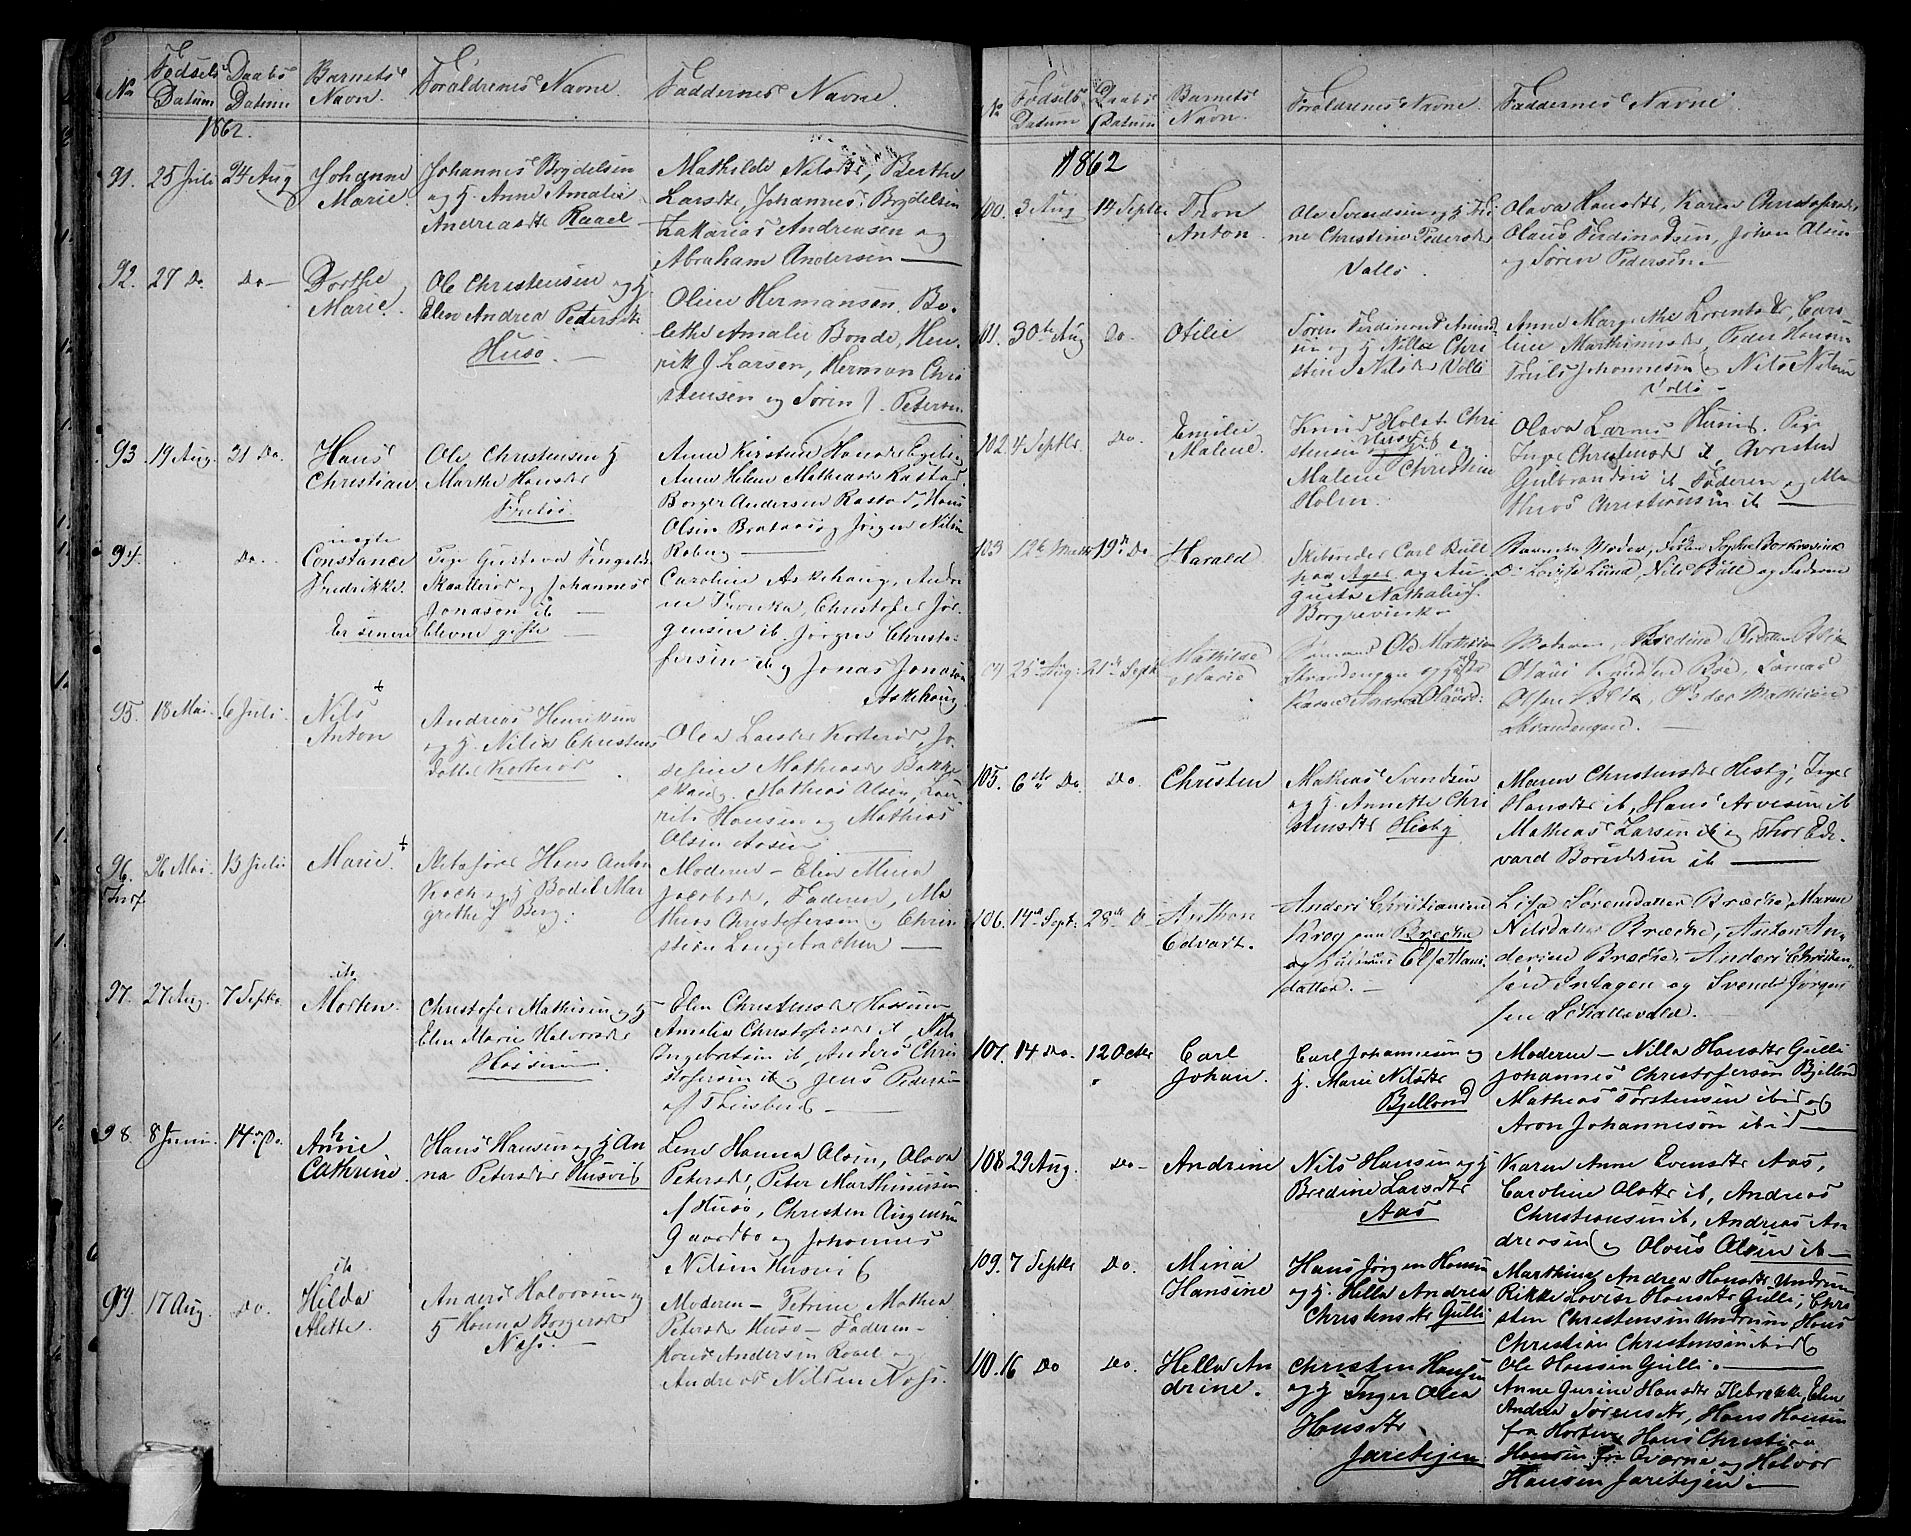 No Fødsels Datum Daabs Datum Barnets Navn. Forældrenes Navne. Faddernes Navne.
1862.
91. 25 Juli 24 Aug Johanne Marie.
Johannes Brydelsen
og h. Anne Amalie
Andreasdtr Raael
Mathilde Nilsdtr, Berthe
Larsdtr, Johannes Brydelsen
Zakarias Andreasen og
Abraham Andersen
92. 27 Do. Do Dorthe Marie.
Ole Christensen og h.
Elen Andrea Pedersdtr
Husø.
Oline Hermansen, Bo-
lethe Amalie Bonde, Hen-
rik J Larsen, Herman Chri
stensen og Søren J. Petersen
93 19 Aug. 31 Do. Hans Christian.
Ole Christensen h
Marthe Hansdtr
Anne Kirstine Hansdtr
Anne Helene Mathiasdtr Rastad
Borger Andersen Rastad, Hans
Olsen og Jørgen Nilsen
Roberg
94. Do. uægte
Constance Fredrikke.
Pige Gustava
og Johannes
Jonasen ib
Er senere blevne gifte
Caroline Askehaug, Andri
ne Christofer Jør-
gensen ib. Jørgen Christo-
fersen ib og Jonas Jonasen
Askehaug
95. 18 Mai. 6 Juli. Nils Anton
Andreas Henriksen
og h. Nilia Christens
datter
Olea Larsdtr Jo-
sefine Mathiasdtr Bakke
Mathias Olsen, Lau-
rits Hansen og Mathias
Olsen Aasen
96. 26 Mai. 13 Juli Marie
Hans Anton
Koch og h Bodil Mar
grethe f Berg.
Moderen Elen Mina
Jacobsdtr, Faderen, Ma
thias Christofersen og Chris
97. 27 Aug. 7 Septbr Morten.
Christofer Mathisen og h
Elen Marie Halvorsdtr
Elen Christensdtr
Amalia Christofersdtr ib, Nils
Ingebretsen ib, Anders Chris
tofersen ib og Jens Pedersen
af Tønsberg
98. 8 Juni. 14 Do. Anne Cathrine
Hans Hansen og h An
na Petersdtr Husvig
Lene Hanna Olsen, Olava
Petersdtr, Peter Marthinusen
af Husø, Christen Augensen
Gaardbo og Johannes
Nilsen Husvig
99. 17 Aug. Do. Hilda Alette.
Anders Halvorsen og
h Hanna Borgersdtr
Næss.
Moderen Petrine Mathea
Petersdtr Husø Faderen
Andersen Raael og
Andreas Nilsen Næss.
No Fødsels Datum Daabs Datum Barnets Navn. Forældrenes Navne. Faddernes Navne
1862
100. 3 Aug 14 Septbr Thon Anton
Ole Svendsen og h Tri
ne Christine Pedersdtr
Vallø.
Olava Hansdtr, Karen Christofersdtr
Olaus Ferdinadsen, Johan Olsen
og Søren Pedersen.
101. 30te Aug Do. Otilie
Søren Ferdinand Amund
sen og h Nilla Chri
stine Nilsdtr Vallø
Anne Margrethe Lorentsdtr, Caro
line Marthinusdtr, Peder Hansen
Truls Johannesen og Nils Nilsen
Vallø
102. 4 Septbr. Do. Emilie Malene.
Knud Holst Chri
stensen Husvig og
Malene Christine
Holm.
Olava Larsdtr Pige
Inge Christensdtr ib, Christen
Gulbrandsen ib Faderen og Ma
thias Christiansen ib
103 12te 19de Do Harald
Carl Bull
paa Agerø og Au-
gusta Nathalie f.
Borgrevink
Barnets Moder, Sophie Borkrevink
Lovise Lund, Nils Bull og Faderen
104 25de Aug. 21de Septbr Mathilde Marie
Ole Mathisen
Strandengen og hustru
Karen Andrea Olausd:
Moderen, Bredine
Olaus Knudsen Bøe, Tomas
Olsen Peder Mathisen
Strandengen.
105. 6te Do. Do. Christen
Mathias Svendsen
og h. Annette Chri
stensdtr Hesby
Maren Christensdtr Hesby, Inger
Hansdtr ib, Hans Arvesen ib
Mathias Larsen ib og Thor Ed-
vard Boriksen ib
106. 14de Sept. 28de D. Anthon Edvart.
Anders Christiansen
Krog paa Brecke
og Hustrue Else Hans
datter.
Lisa Sørensdatter Brecke, Maren
Nilsdatter Brecke, Anton An-
dersen Brecke, Anders Christian-
sen Intagen og Svend Jørgen
sen Skallevald.
107. 14 Do. 12 Octbr Carl Johan.
Carl Johannesen og
h. Marie Nilsdtr
Bjelland
Moderen Nilla Hansdtr Gulli
Johannes Christofersen Bjelland
Mathias Torstensen ibid og
Aron Johannesen ibid
108 29 Aug. Do Andrine
Nils Hansen og h
Bredine Larsdtr
Aas
Karen Anne Evensdtr Aas,
Caroline Olsdtr ib, Andreas
Christiansen ib, Andreas An-
dreasen og Olaus Olsen ib
109. 7 Septbr Do. Mina Hansine
Hans Jørgen Hansen
og h. Hella Andrea
Christensdtr Gulli
Marthine Andrea Hansdtr Undrum
Rikke Lovise Hansdtr Gulli, Chri
sten Christensen Undrum, Hans
Christian Christensen ibid
Ole Hansen Gulli.
110. 16 Do Do. Hella An drine.
Christen Hansen
og h Inger Olea
Hansdtr
Jareteigen
Anne Gurine Hansdtr Elen
Andrea Sørensdtr, Hans Hansen
fra Horten Hans Christian
Hansen fra Qværne og Halvor
Hansen Jareteigen.